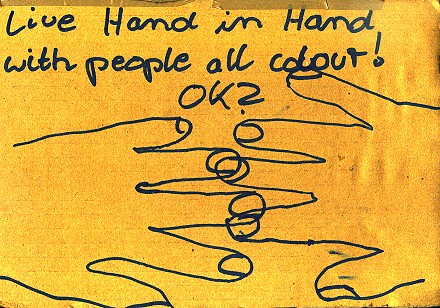 Live Hand in Hand
with people all colour!
OK?